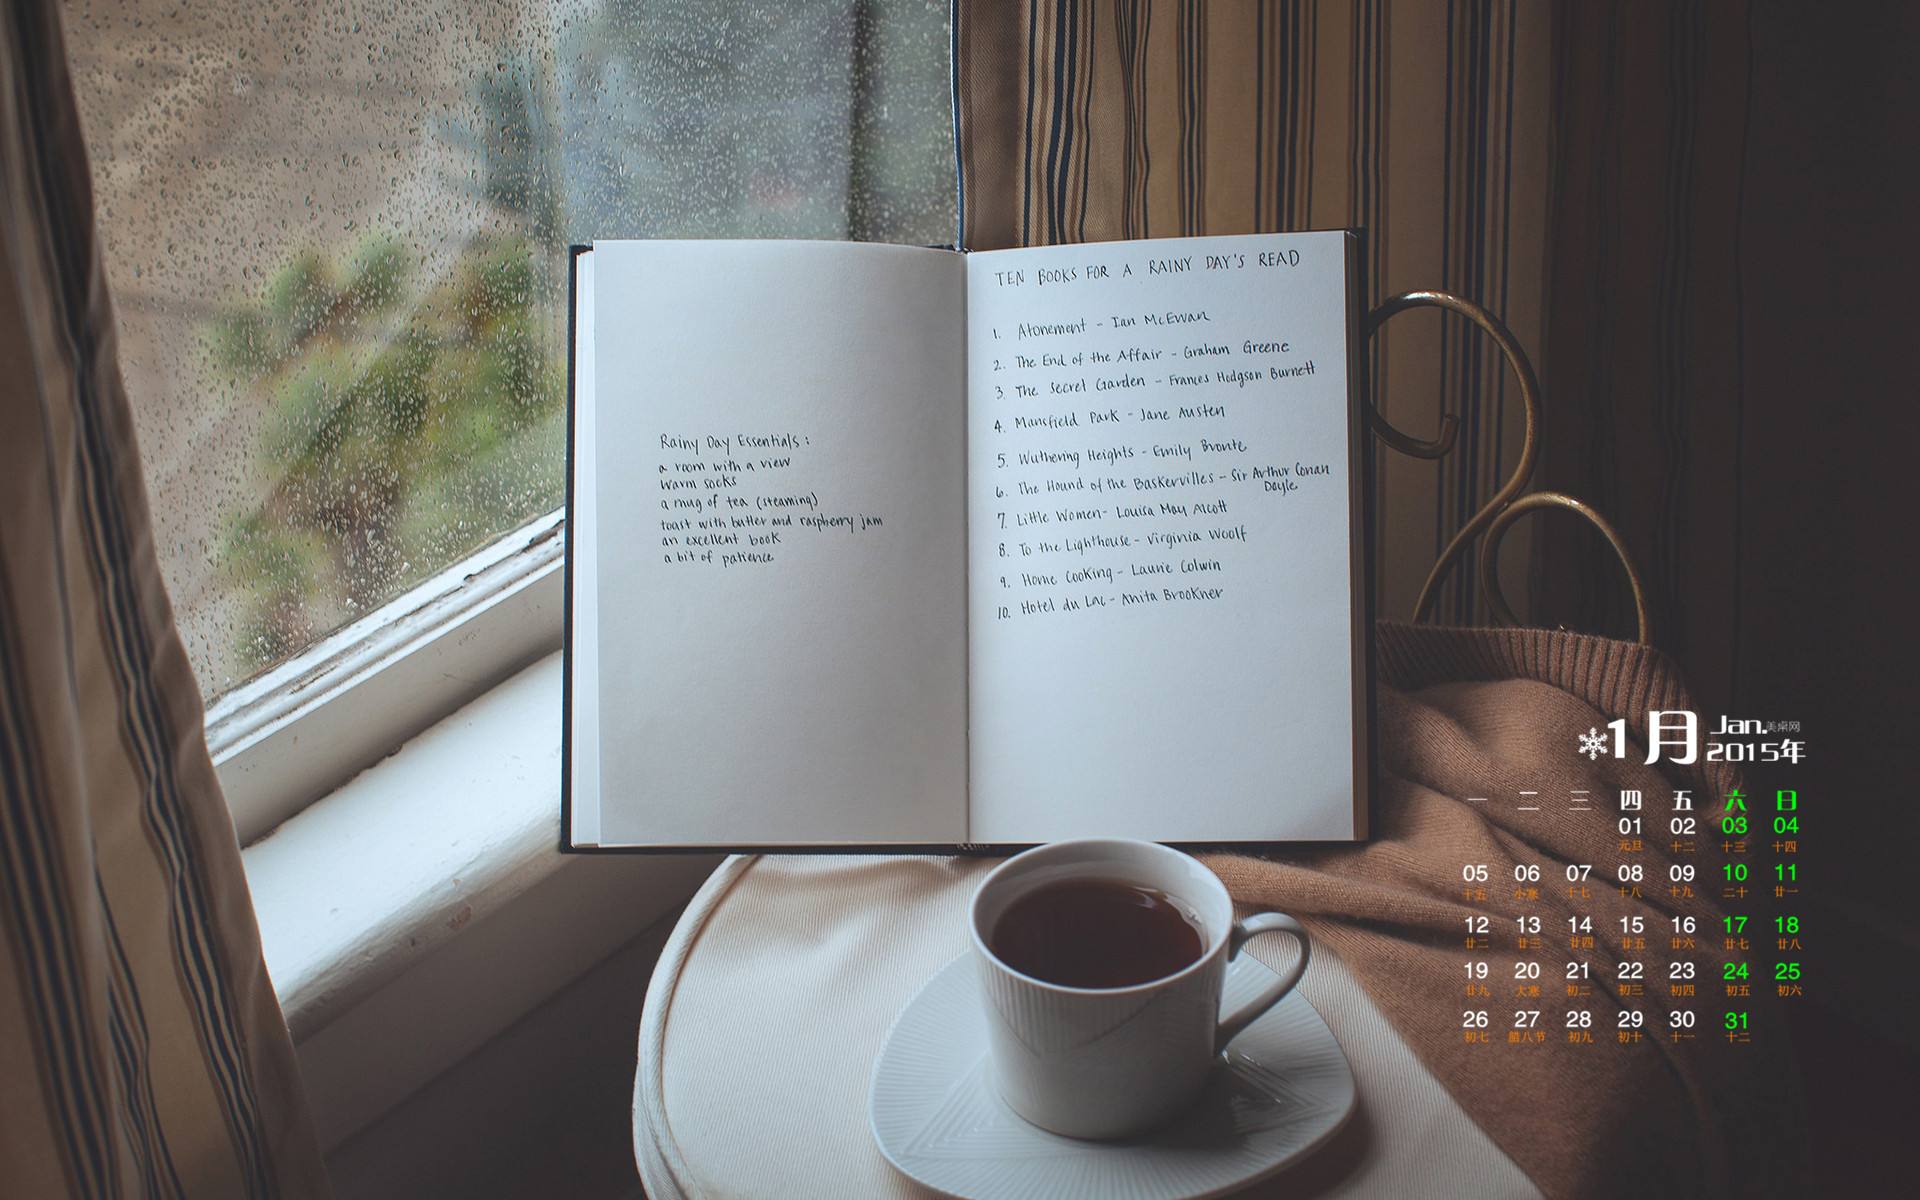 Rainy Day Essentials:
a room with a view
warm socks
a mug of tea (steaming)
toast with butter and raspberry jam
an excellent book
a bit of patience
TEN BOOKS FOR A RAINY DAY'S READ
1. Atonement - Ian McEwan
2. The End of the Affair - Graham Greene
3. The Secret Garden - Frances Hodgson Burnett
4. Mansfield Park - Jane Austen
5. Wuthering Heights - Emily Bronte
6. The Hound of the Baskervilles - Sir Arthur Conan
Doyle
7. Little Women - Louisa May Alcott
8. To the Lighthouse - Virginia Woolf
9. Home Cooking - Laurie Colwin
10. Hotel du Lac - Anita Brookner
1月 Jan.美桌网
2015年
一 二 三 四 五 六 日
01 02 03 04
元旦 十二 十三 十四
05 06 07 08 09 10 11
十五 小寒 十七 十八 十九 二十 廿一
12 13 14 15 16 17 18
廿二 廿三 廿四 廿五 廿六 廿七 廿八
19 20 21 22 23 24 25
廿九 大寒 初二 初三 初四 初五 初六
26 27 28 29 30 31
初七 腊八节 初九 初十 十一 十二